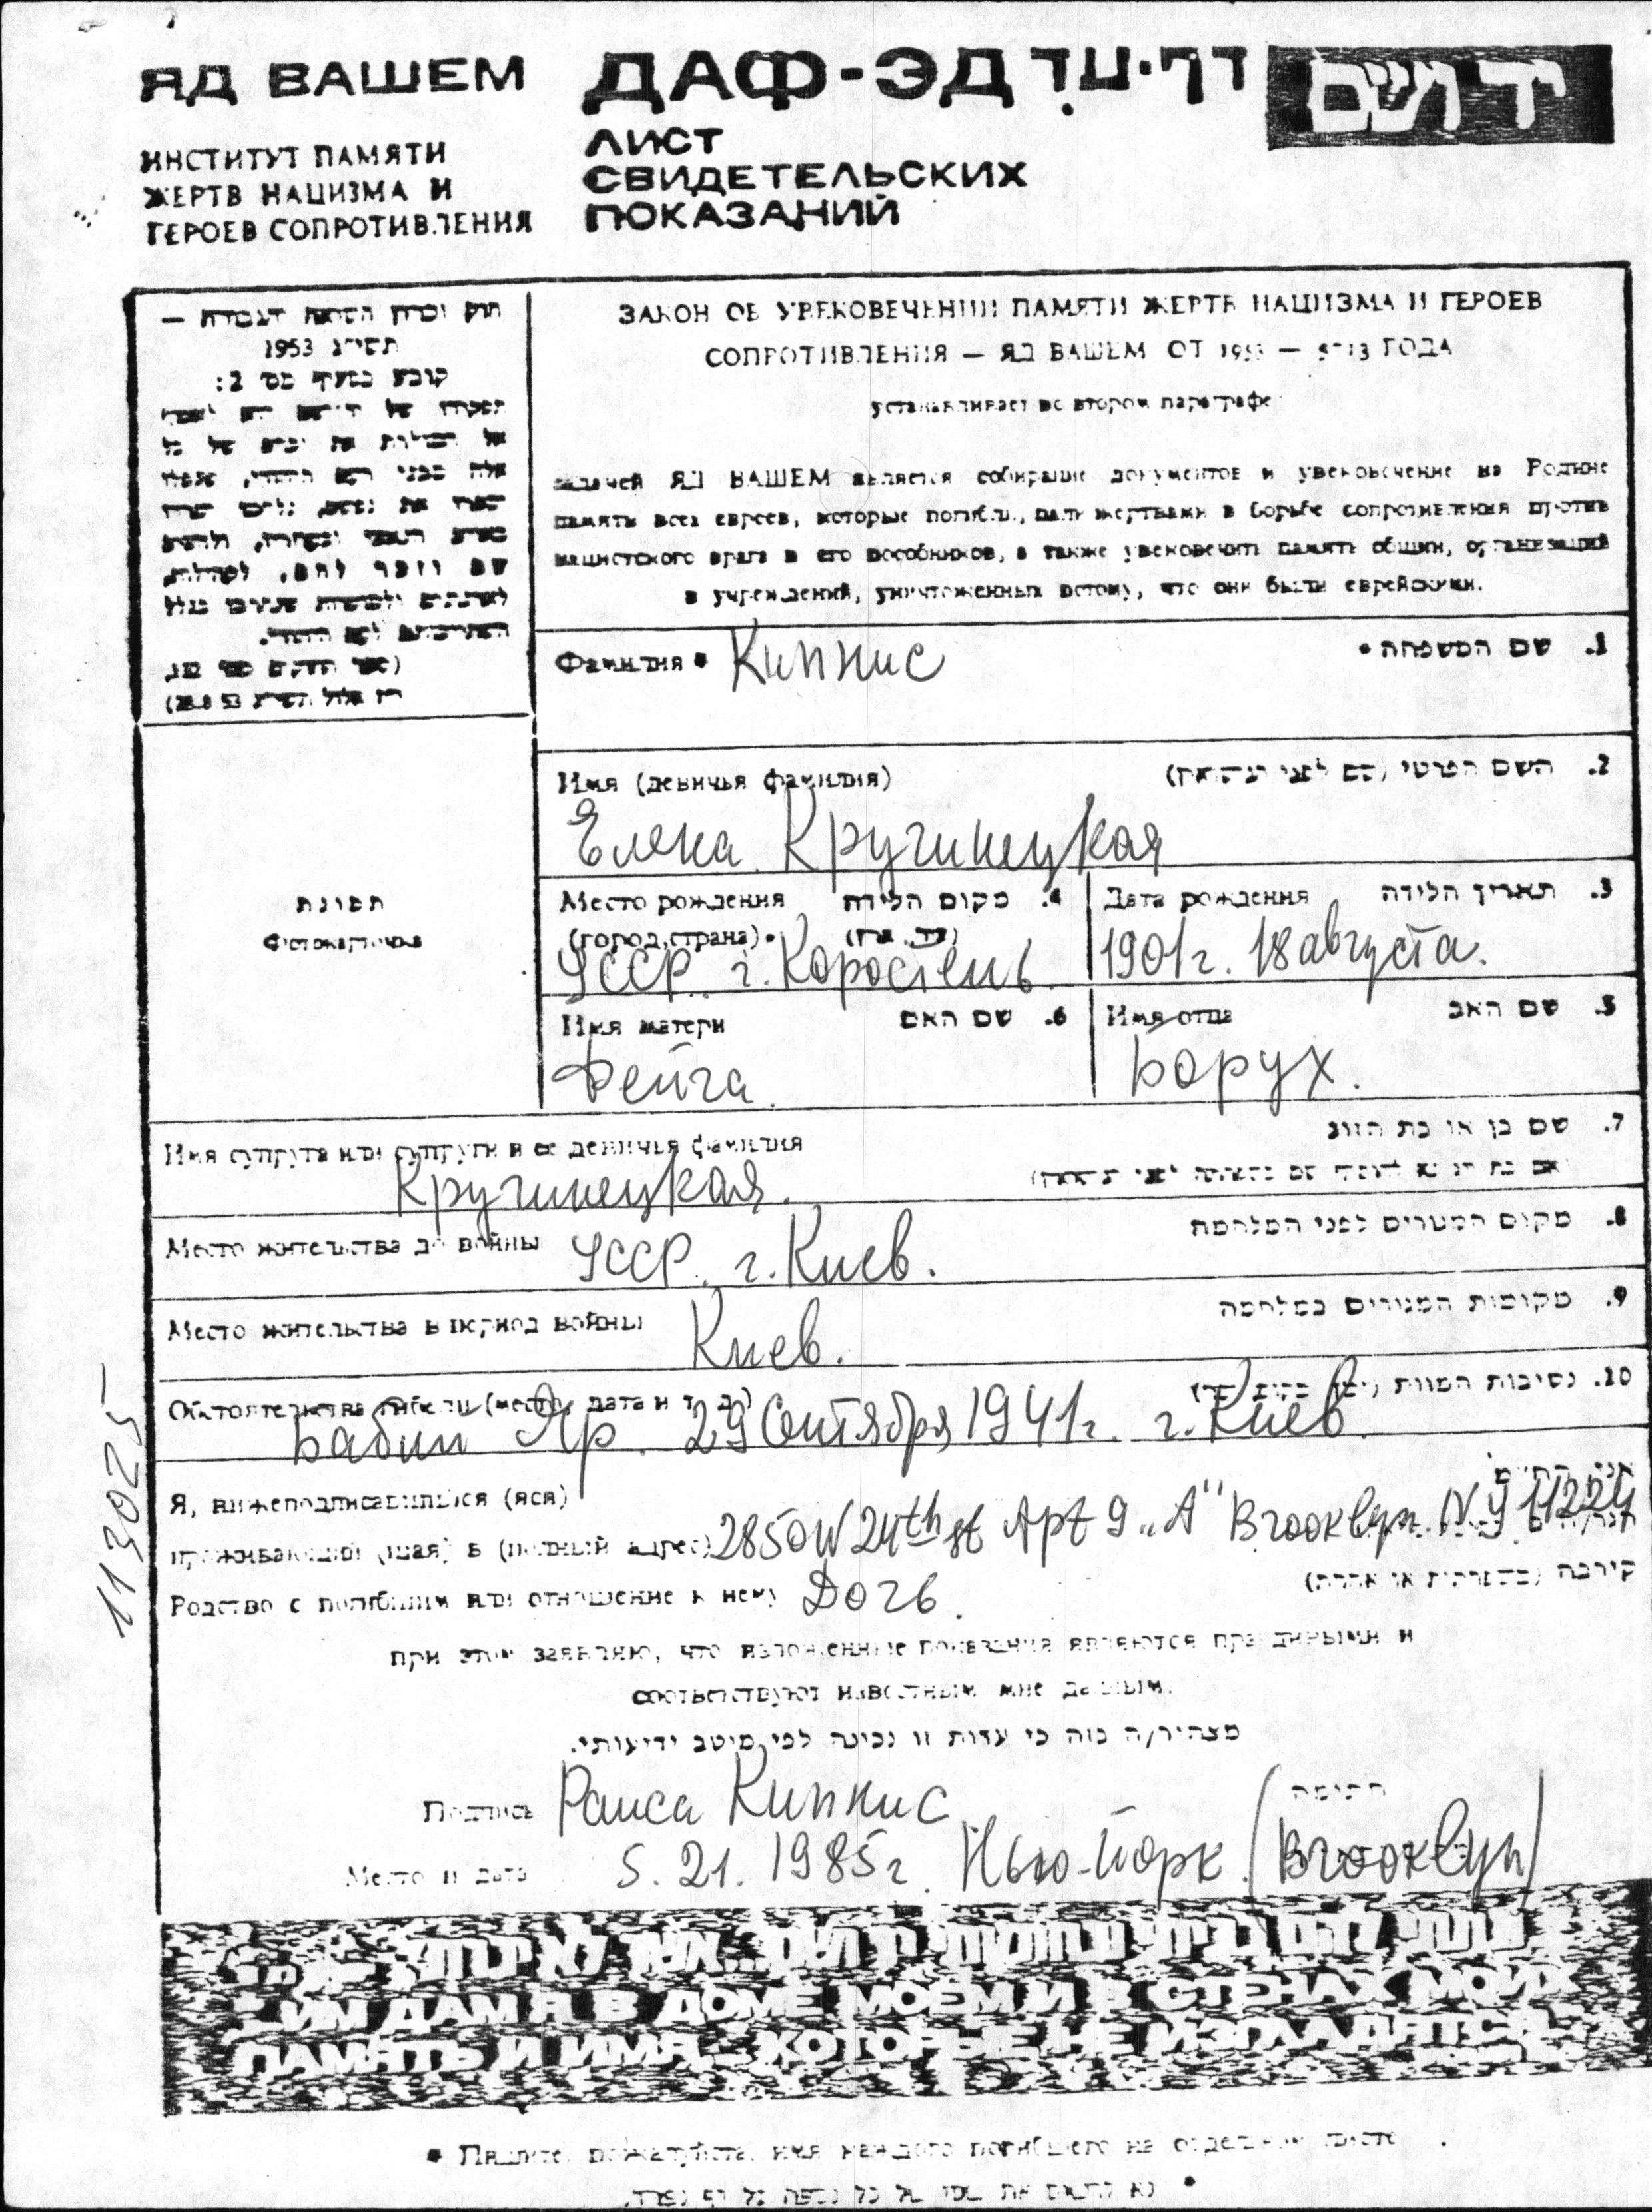 ЯД ВАШЕМ
ДАФ-ЭД דף-עד
יד ושם
ИНСТИТУТ ПАМЯТИ
ЖЕРТВ НАЦИЗМА И
ГЕРОЕВ СОПРОТИВЛЕНИЯ
ЛИСТ
СВИДЕТЕЛЬСКИХ
ПОКАЗАНИЙ
תשי"ג 1953
קובע בסעיף מס' 2:
ЗАКОН ОБ УВЕКОВЕЧЕНИИ ПАМЯТИ ЖЕРТВ НАЦИЗМА И ГЕРОЕВ
СОПРОТИВЛЕНИЯ — ЯД ВАШЕМ ОТ 1953 — 5713 ГОДА
устанавливает во втором параграфе
задачей ЯД ВАШЕМ является собирание документов и увековечение на Родине
память всех евреев, которые погибли, пали жертвами в борьбе сопротивления против
нацистского врага и его пособников, а также увековечить память общин, организаций
и учреждений, уничтоженных потому, что они были еврейскими.
Фамилия • Кипнис
1. שם המשפחה •
Имя (девичья фамилия)
2. השם הפרטי (שם לפני הנישואין)
Елена Кручинецкая
Место рождения
4. מקום הלידה
(город, страна) •
Дата рождения
3. תאריך הלידה
УССР г. Коростень
1901г. 18 августа.
Имя матери
6. שם האם
Имя отца
5. שם האב
Фейга.
Борух.
תמונה
Фотокарточка
Имя супруга или супруги и ее девичья фамилия
7. שם בן או בת הזוג
Кручинецкая.
Место жительства до войны УССР. г. Киев.
8. מקום המגורים לפני המלחמה
Место жительства в период войны Киев.
9. מקומות המגורים במלחמה
Обстоятельства гибели (место, дата и т. д.)
10. נסיבות המוות
Бабий Яр. 29 Сентября 1941г. г. Киев.
Я, нижеподписавшийся (аяся)
проживающий (щая) в (полный адрес) 2850 W 24th st Apt 9 „A" Brooklyn. N.Y 11224
Родство с погибшим или отношение к нему Дочь.
קירבה (משפחתית או אחרת)
при этом заявляю, что изложенные показания являются правдивыми и
соответствуют известным мне данным.
מצהיר/ה בזה כי עדות זו נכונה לפי מיטב ידיעותי.
Подпись Раиса Кипнис
חתימה
Место и дата 5. 21. 1985г. Нью-Йорк (Brooklyn)
113025
„ИМ ДАМ Я В ДОМЕ МОЕМ И В СТЕНАХ МОИХ
ПАМЯТЬ И ИМЯ, КОТОРЫЕ НЕ ИЗГЛАДЯТСЯ"
• Пишите, пожалуйста, имя каждого погибшего на отдельном листе.